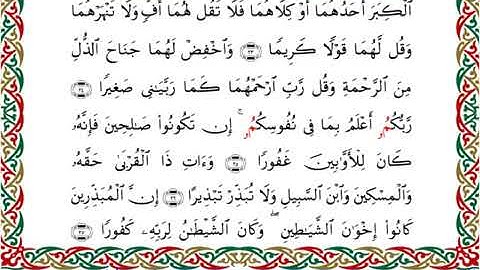 ٱلۡكِبَرَ أَحَدُهُمَآ أَوۡ كِلَاهُمَا فَلَا تَقُل لَّهُمَآ أُفّٖ وَلَا تَنۡهَرۡهُمَا
وَقُل لَّهُمَا قَوۡلٗا كَرِيمٗا ٢٣ وَٱخۡفِضۡ لَهُمَا جَنَاحَ ٱلذُّلِّ
مِنَ ٱلرَّحۡمَةِ وَقُل رَّبِّ ٱرۡحَمۡهُمَا كَمَا رَبَّيَانِي صَغِيرٗا ٢٤
رَّبُّكُمُۥٓ أَعۡلَمُ بِمَا فِي نُفُوسِكُمُۥٓۚ إِن تَكُونُواْ صَٰلِحِينَ فَإِنَّهُۥ
كَانَ لِلۡأَوَّٰبِينَ غَفُورٗا ٢٥ وَءَاتِ ذَا ٱلۡقُرۡبَىٰ حَقَّهُۥ
وَٱلۡمِسۡكِينَ وَٱبۡنَ ٱلسَّبِيلِ وَلَا تُبَذِّرۡ تَبۡذِيرًا ٢٦ إِنَّ ٱلۡمُبَذِّرِينَ
كَانُوٓاْ إِخۡوَٰنَ ٱلشَّيَٰطِينِۖ وَكَانَ ٱلشَّيۡطَٰنُ لِرَبِّهِۦ كَفُورٗا ٢٧